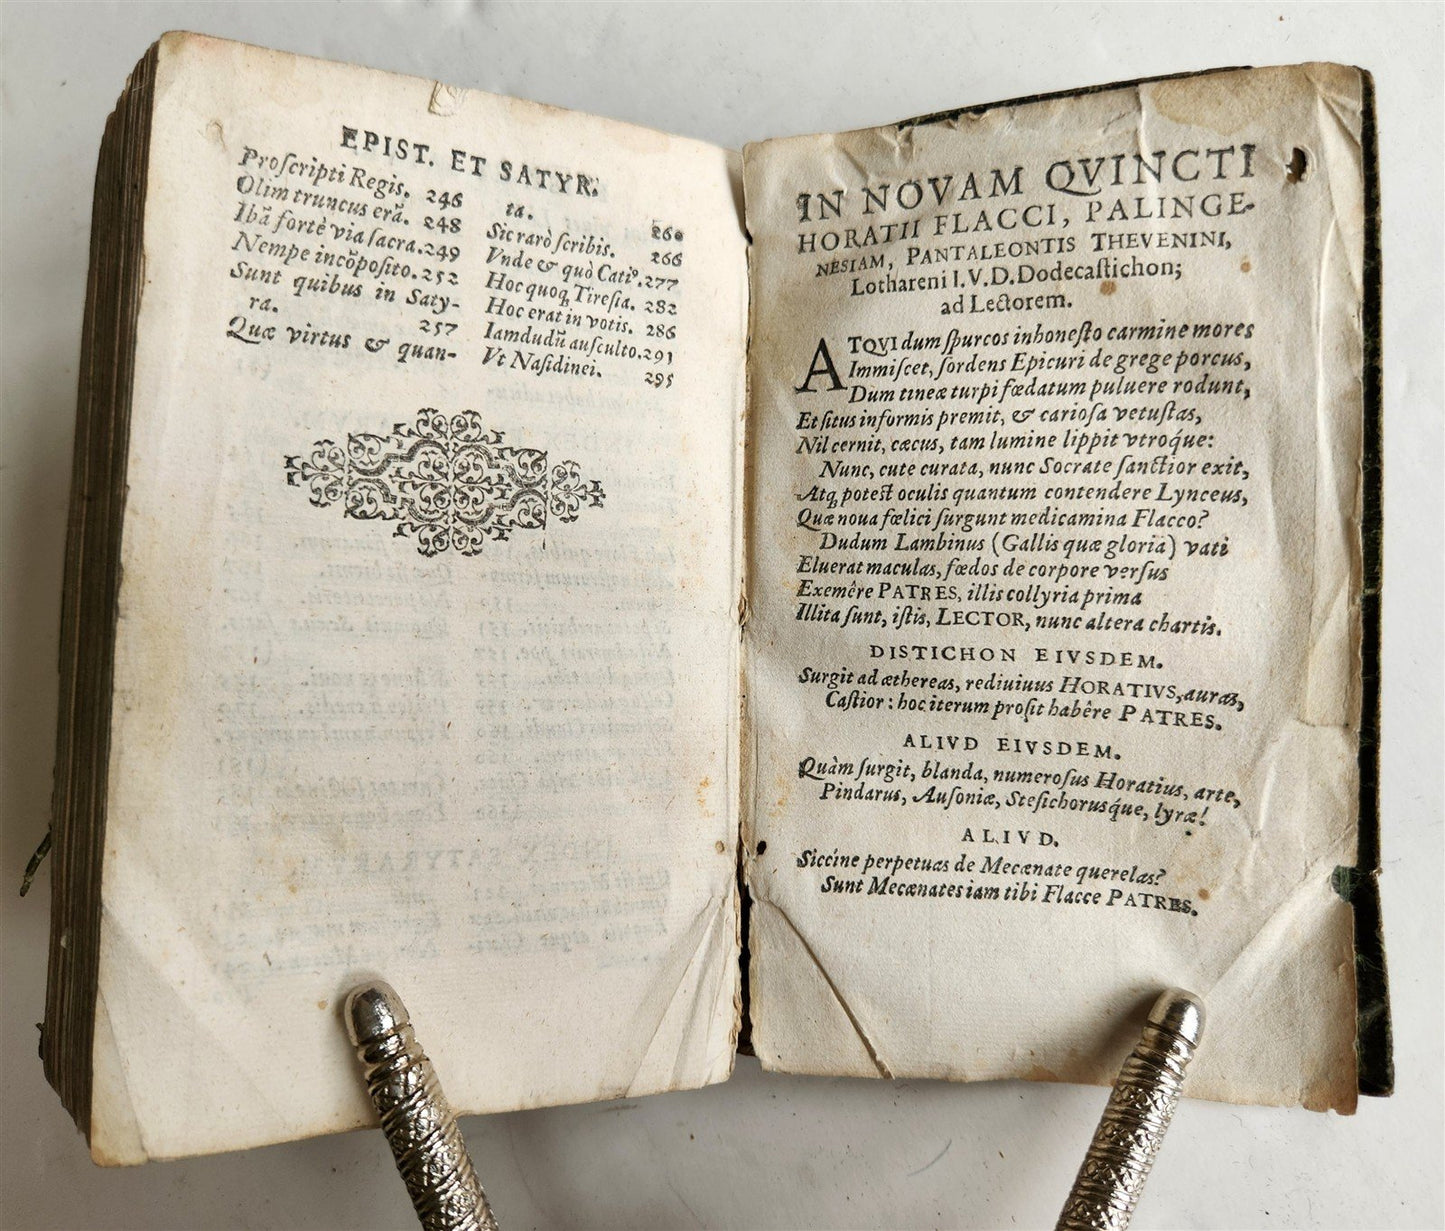 EPIST. ET SATYR.
Proſcripti Regis. 246
Olim truncus erã. 248
Ibã fortè via ſacra. 249
Nempe incõpoſito. 252
Sunt quibus in Saty-
ra. 257
Quæ virtus & quan-
ta. 260
Sic rarò ſcribis. 266
Vnde & quò Catiꝰ. 277
Hoc quoq; Tireſia. 282
Hoc erat in votis. 286
Iamdudũ auſculto. 291
Vt Naſidinei. 295
IN NOVAM QVINCTI
HORATII FLACCI, PALINGE-
NESIAM, PANTALEONTIS THEVENINI,
Lothareni I.V.D. Dodecaſtichon;
ad Lectorem.
ATQVI dum ſpurcos inhoneſto carmine mores
Immiſcet, ſordens Epicuri de grege porcus,
Dum tineæ turpi fœdatum puluere rodunt,
Et ſitus informis premit, & carioſa vetuſtas,
Nil cernit, cæcus, tam lumine lippit vtroque:
Nunc, cute curata, nunc Socrate ſanctior exit,
Atq; poteſt oculis quantum contendere Lynceus,
Quæ noua fœlici ſurgunt medicamina Flacco?
Dudum Lambinus (Gallis quæ gloria) vati
Eluerat maculas, fœdos de corpore verſus
Exemêre PATRES, illis collyria prima
Illita ſunt, iſtis, LECTOR, nunc altera chartis.
DISTICHON EIVSDEM.
Surgit ad æthereas, rediuiuus HORATIVS, auras,
Caſtior: hoc iterum proſit habêre PATRES.
ALIVD EIVSDEM.
Quàm ſurgit, blanda, numeroſus Horatius, arte,
Pindarus, Auſoniæ, Steſichorusq́ue, lyræ!
ALIVD.
Siccine perpetuas de Mecænate querelas?
Sunt Mecænates iam tibi Flacce PATRES.